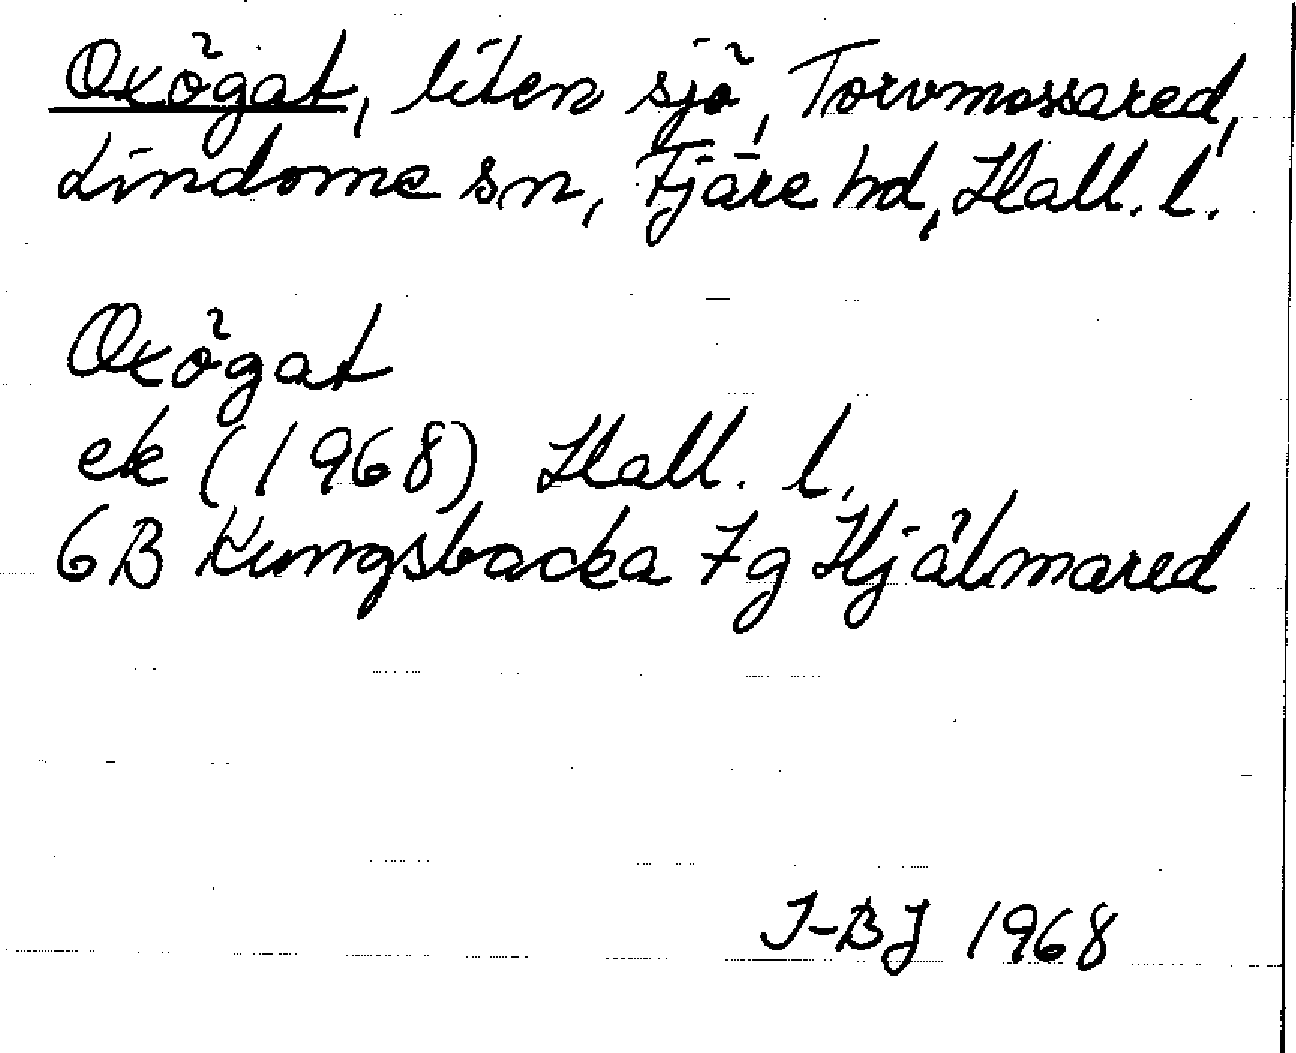 Oxögat, liten sjö, Torvmossared,
Lindome sn, Fjäre hd, Hall. l.
Oxögat
ek (1968) Hall. l.
6B Kungsbacka 7g Hjälmared
I-BJ 1968